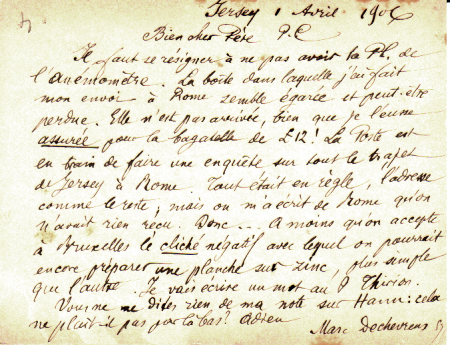 Jersey 1 Avril 1906
Bien cher Père P.C
Il faut se résigner à ne pas avoir la Pl. de
l'Anémomètre. La boîte dans laquelle j'ai fait
mon envoi à Rome semble égarée et peut-être
perdue. Elle n'est pas arrivée, bien que je l'eusse
assurée pour la bagatelle de £12! La Poste est
en train de faire une enquête sur tout le trajet
de Jersey à Rome. Tout était en règle, l'adresse
comme le reste; mais on m'a écrit de Rome qu'on
n'avait rien reçu. Donc... A moins qu'on accepte
à Bruxelles le cliché négatif avec lequel on pourrait
encore préparer une planche sur zinc, plus simple
que l'autre. Je vais écrire un mot au P Thirion.
Vous ne me dites rien de ma note sur Hann: cela
ne plaît-il pas par là bas? Adieu
Marc Dechevrens sj